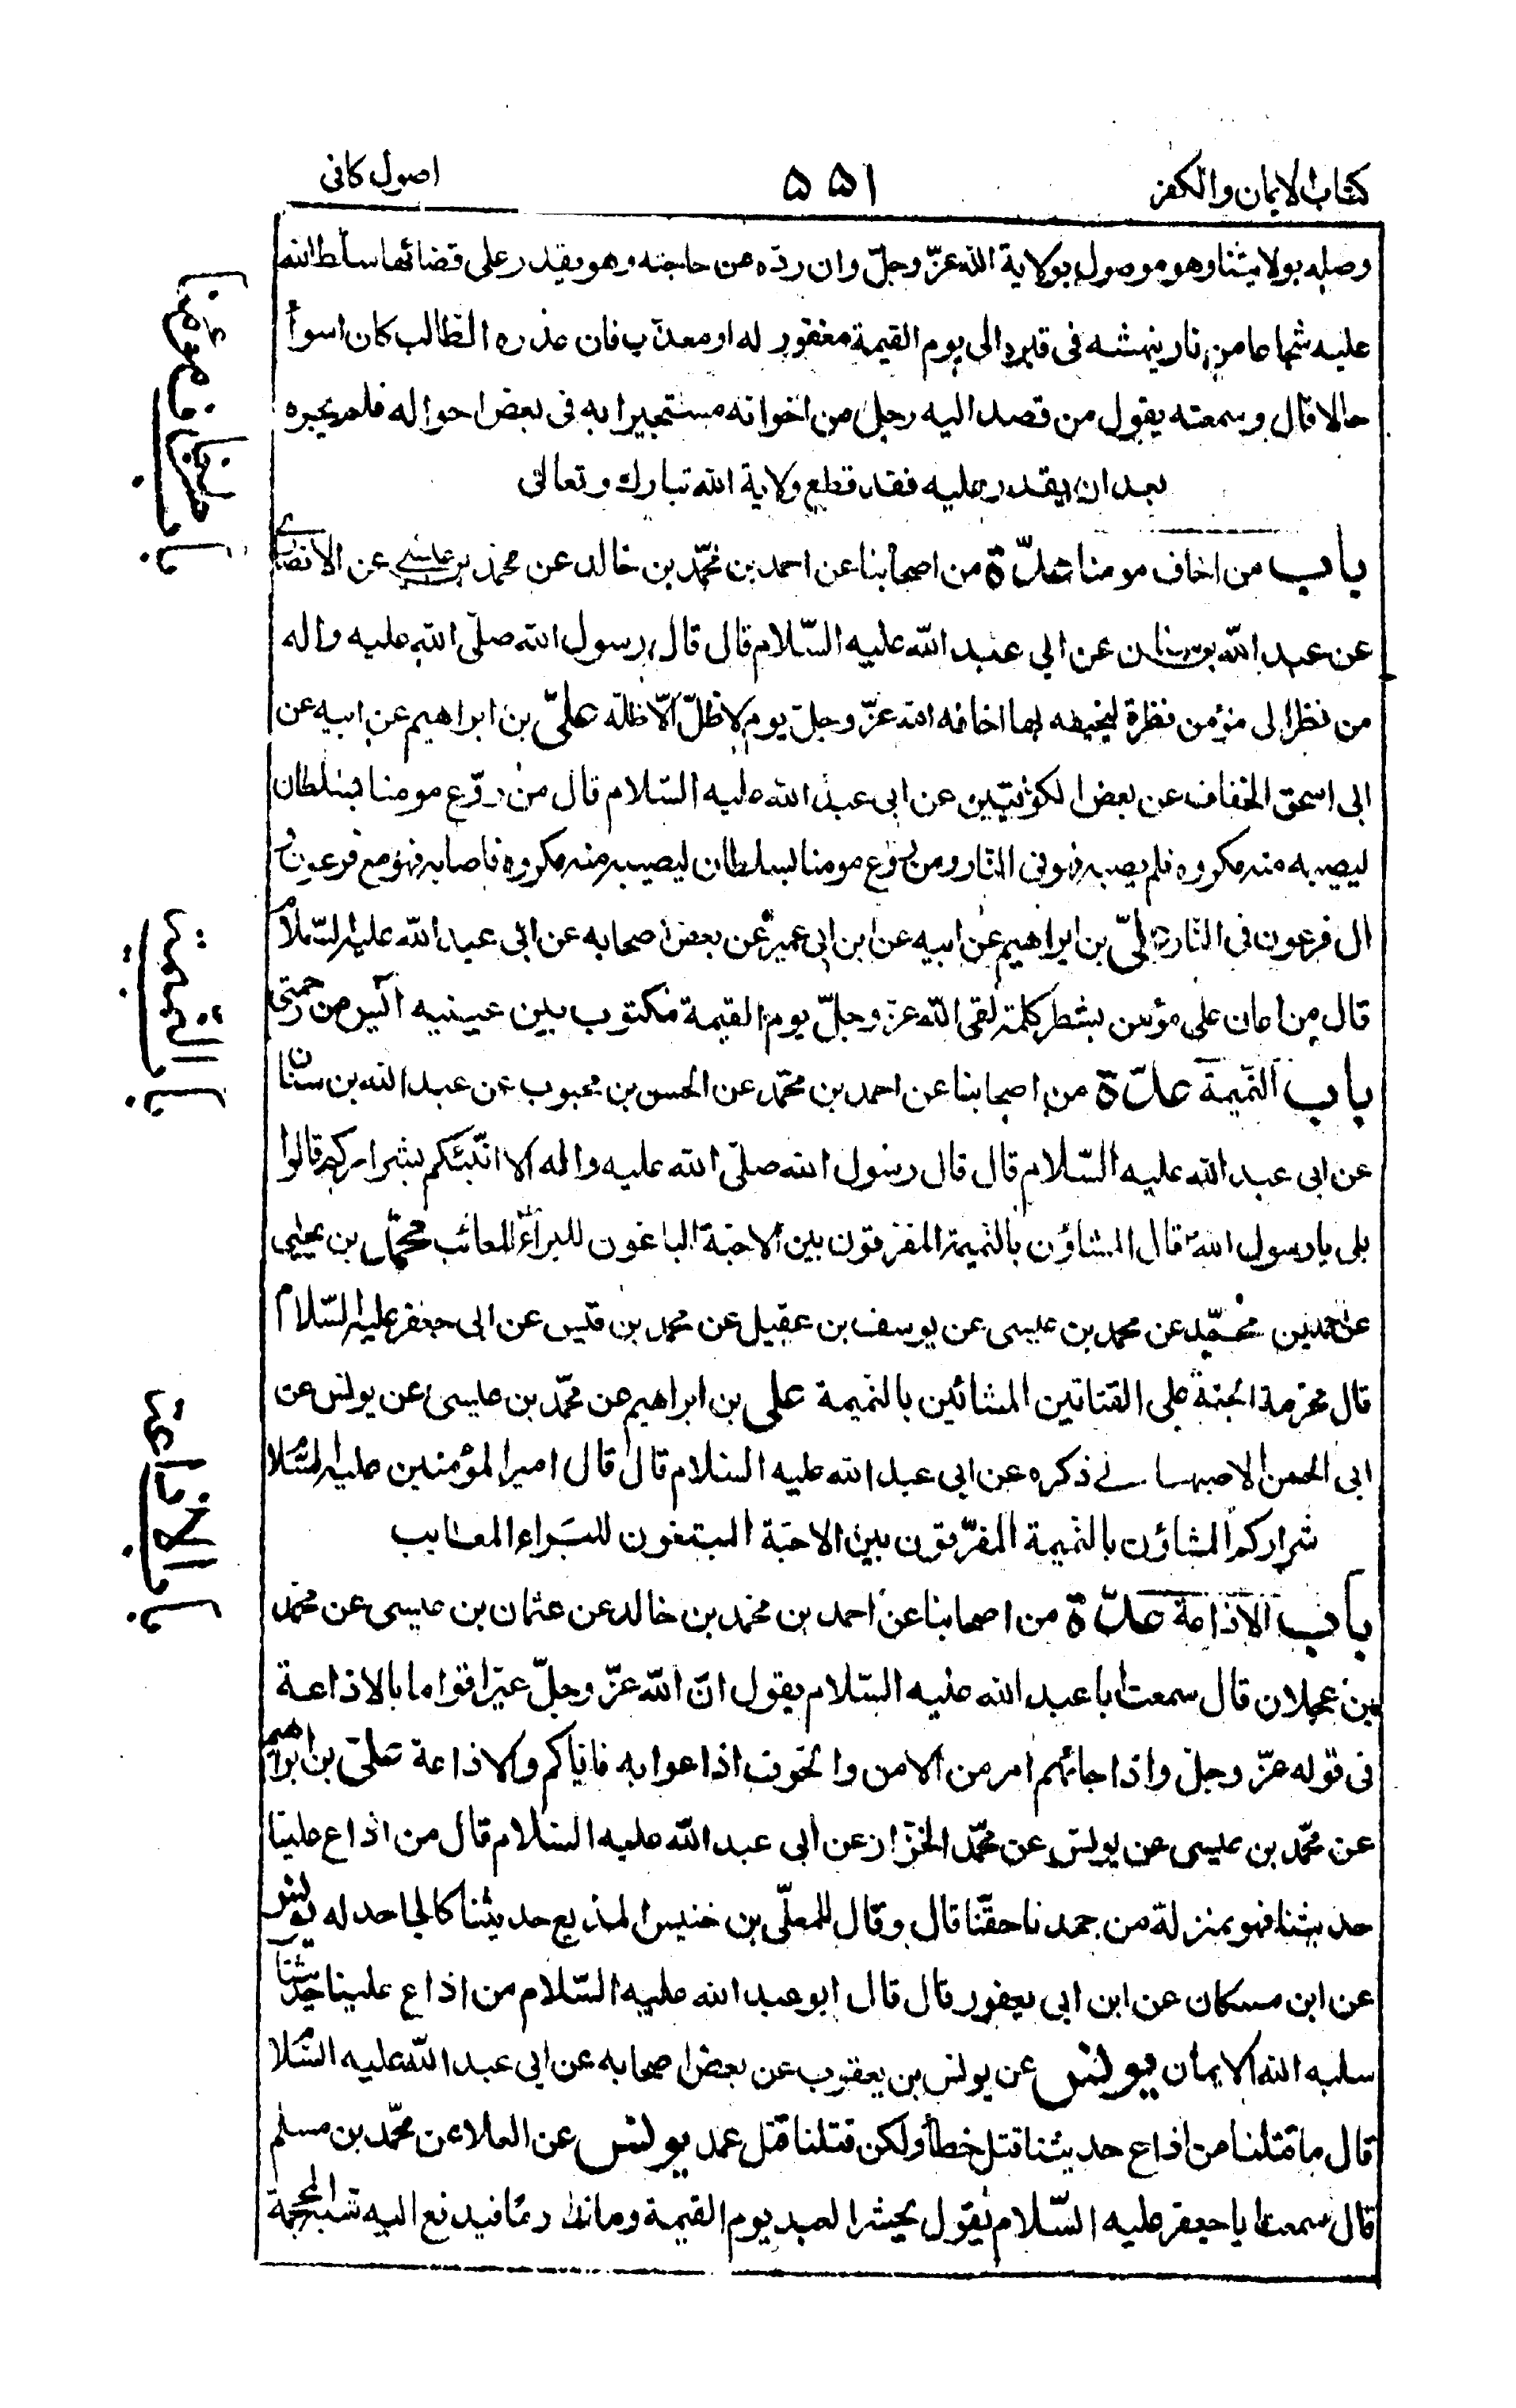 كتاب الايمان والكفر
۵۵۱
اصول كافى
وصله بولايتنا وهو موصول بولاية الله عزّ وجلّ وان ردّه عن حاجته وهو يقدر على قضائها سلط الله
عليه شجاعا من نار ينهشه فى قبره الى يوم القيمة مغفور له او معذب فان عذره الطالب كان اسوأ
حالا قال وسمعته يقول من قصد اليه رجل من اخوانه مستجيرا به فى بعض احواله فلم يجره
بعد ان يقدر عليه فقد قطع ولاية الله تبارك وتعالى
باب من اخاف مومنا عدّة من اصحابنا عن احمد بن محمّد بن خالد عن محمد بن عيسى عن الانصارى
عن عبد الله بن سنان عن ابى عبد الله عليه السّلام قال قال رسول الله صلّى الله عليه واله
من نظر الى مؤمن نظرة ليخيفه بها اخافه الله عزّ وجلّ يوم لا ظلّ الّا ظلّه علىّ بن ابراهيم عن ابيه عن
ابى اسحق الخفاف عن بعض الكوفيّين عن ابى عبد الله عليه السّلام قال من روّع مومنا بسلطان
ليصيبه منه مكروه فلم يصبه فهو فى النار ومن روّع مومنا بسلطان ليصيبه منه مكروه فاصابه فهو مع فرعون و
ال فرعون فى النار علىّ بن ابراهيم عن ابيه عن ابن ابى عمير عن بعض اصحابه عن ابى عبد الله عليه السّلام
قال من اعان على مؤمن بشطر كلمة لقى الله عز وجلّ يوم القيمة مكتوب بين عينيه آئس من رحمتى
باب النّميمة عدّة من اصحابنا عن احمد بن محمّد عن الحسن بن محبوب عن عبد الله بن سنان
عن ابى عبد الله عليه السّلام قال قال رسول الله صلّى الله عليه واله الا انبّئكم بشراركم قالوا
بلى يا رسول الله قال المشاؤن بالنميمة المفرقون بين الاحبّة الباغون للبراء المعائب محمّد بن يحيى
عن احمد بن محمّد عن محمد بن عيسى عن يوسف بن عقيل عن محمد بن قيس عن ابى جعفر عليه السّلام
قال محرمة الجنة على القتاتين المشائين بالنميمة على بن ابراهيم عن محمّد بن عيسى عن يونس عن
ابى الحسن الاصبهانى ذكره عن ابى عبد الله عليه السلام قال قال امير المؤمنين عليه السّلام
شراركم المشاؤن بالنميمة المفرّقون بين الاحبّة المبتغون للبراء المعايب
باب الاذاعة عدّة من اصحابنا عن احمد بن محمد بن خالد عن عثمان بن عيسى عن محمد
بن عجلان قال سمعت ابا عبد الله عليه السّلام يقول انّ الله عزّ وجلّ عيّر اقواما بالاذاعة
فى قوله عزّ وجلّ واذا جائهم امر من الامن والخوف اذاعوا به فاياكم والاذاعة علىّ بن ابراهيم
عن محمّد بن عيسى عن يونس عن محمّد الخزّاز عن ابى عبد الله عليه السّلام قال من اذاع علينا
حديثنا فهو بمنزلة من جحدنا حقّنا قال وقال للمعلّى بن خنيس المذيع حديثنا كالجاحد له يونس
عن ابن مسكان عن ابن ابى يعفور قال قال ابو عبد الله عليه السّلام من اذاع علينا حديثنا
سلبه الله الايمان يونس عن يونس بن يعقوب عن بعض اصحابه عن ابى عبد الله عليه السّلام
قال ما قتلنا من اذاع حديثنا قتل خطأ ولكن قتلنا قتل عمد يونس عن العلاء عن محمّد بن مسلم
قال سمعت ابا جعفر عليه السّلام يقول يحشر العبد يوم القيمة وماندا دما فيدفع اليه شبه المحجمة
باب النميمة
باب الاذاعة